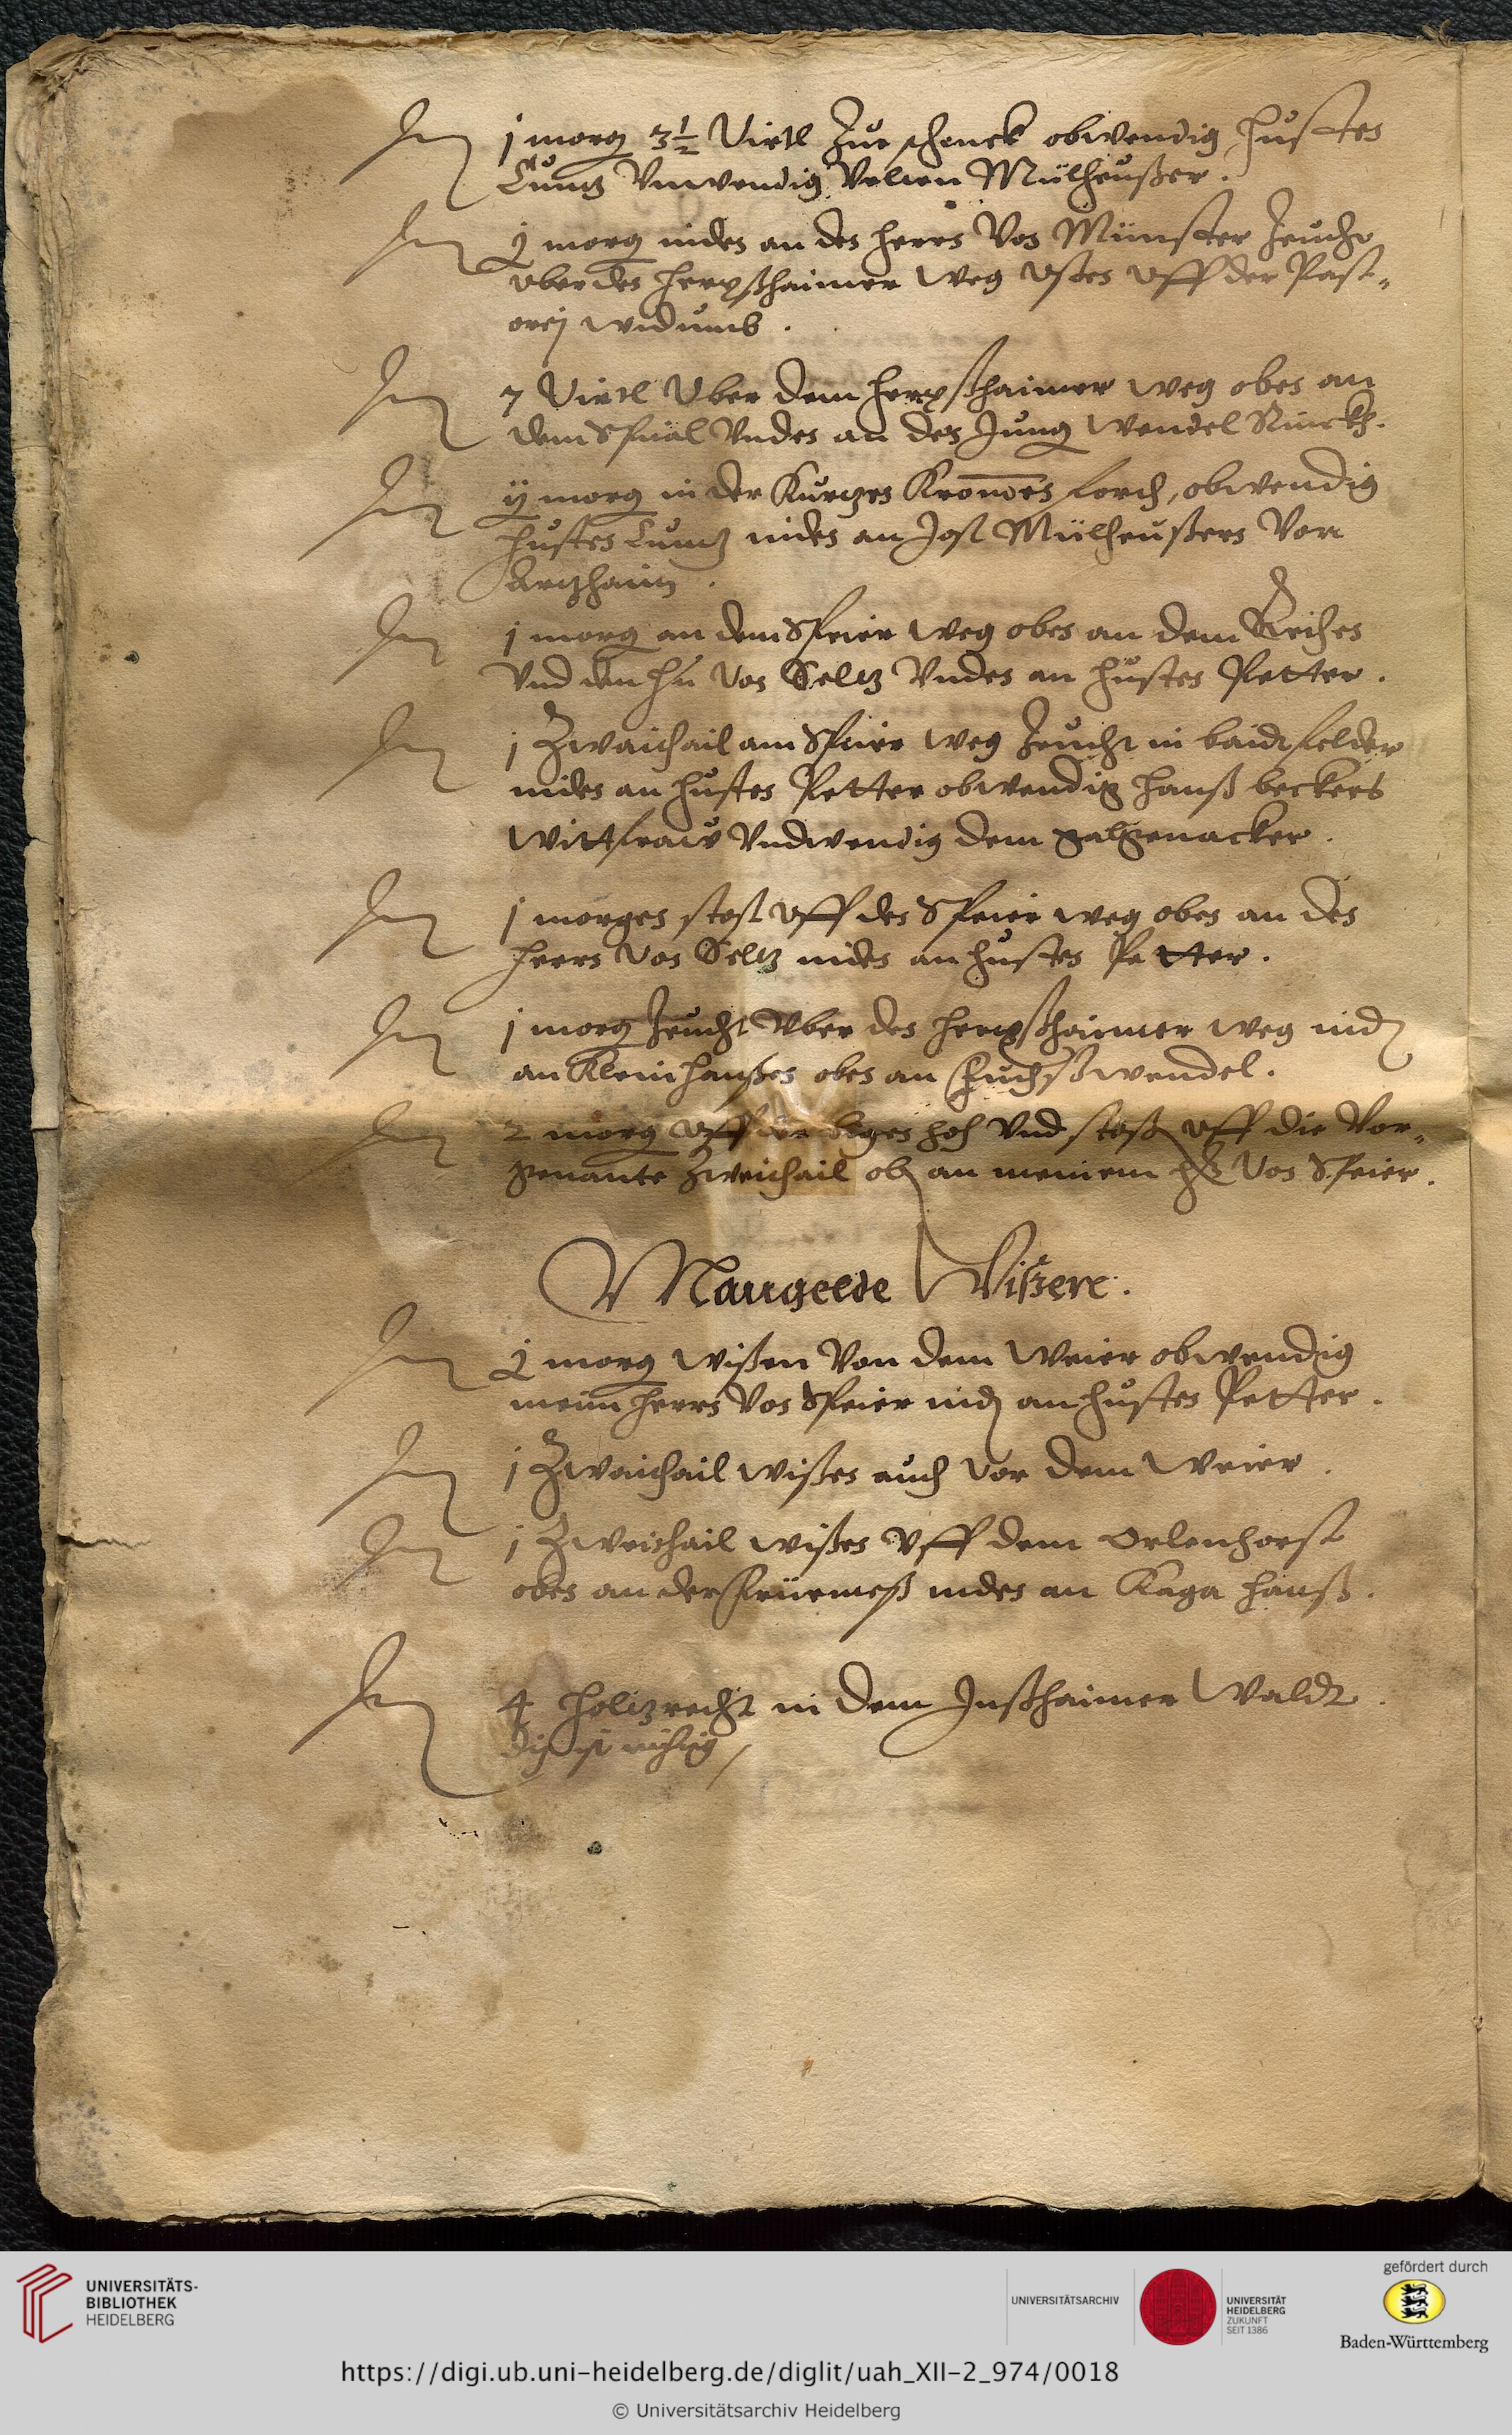 Jtem j morg 3½ Virtl Zur schenck obwendig Hustes
Cuntz Vnwendig Velten Mülheußer.
Jtem j morg nides an des herrs Vos Münster Zeucht
vber des herxshaimer Weg vßes vff der Past-
orej widumb.
Jtem 7 Virtl Vber dem herxshaimer weg obes an
dem Spital Vndes an des Jung Wendel
Jtem ij morg in der Kurtzes Kromes forch, obwendig
Hustes Cuntz nides an Jost Mülheußers Von
Artzhaim.
Jtem j morg an dem Speier Weg obes an dem Reiches
Vnd den hn Vos Seltz Vndes an Hustes Petter.
Jtem j Zwaithail am Speier Weg Zeucht in baide felder
nides an Hustes Petter obwendig Hanß beckers
Wittfraw Vndwendig dem galgenacker.
Jtem j morges stost vff des Speier weg obes an des
herrs Vos Seltz nides an Hustes Petter.
Jtem j morg Zeucht Vber des herxshaimer weg nid
an Kleinhanßes obes an Fuchßwendel.
Jtem 2 morg vff der hoh Vnd stost vff die Vor-
genante Zweithail ob an meinem h Vos Speier.
Mangelde Wißere.
Jtem j morg Wißen Von dem Weier obwendig
meim herrs Vos Speier nid an Hustes Petter.
Jtem j Zwaithail Wißes auch Vor dem Weier.
Jtem j Zweithail wißes Vff dem Orlenhorst
obes an der früemeß nides an Kaga Hanß.
Jtem 4 Holtzrecht in dem Jnßhaimer Waldt.
diß ist nichtig
UNIVERSITÄTS-
BIBLIOTHEK
HEIDELBERG
UNIVERSITÄTSARCHIV
UNIVERSITÄT
HEIDELBERG
ZUKUNFT
SEIT 1386
gefördert durch
Baden-Württemberg
https://digi.ub.uni-heidelberg.de/diglit/uah_XII-2_974/0018
© Universitätsarchiv Heidelberg